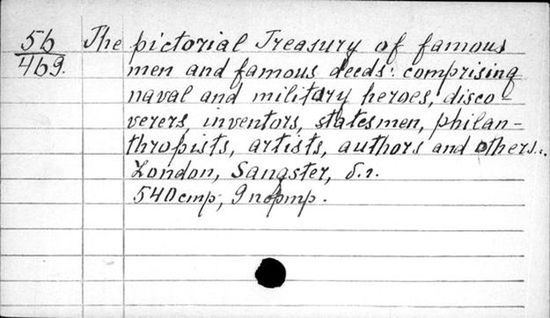 56 The pictorial Treasury of famous
469. men and famous deeds: comprising
naval and military heroes, disco-
verers inventors, statesmen, philan-
thropists, artists, authors and others.
London, Sangster, s.a.
540 cmp,